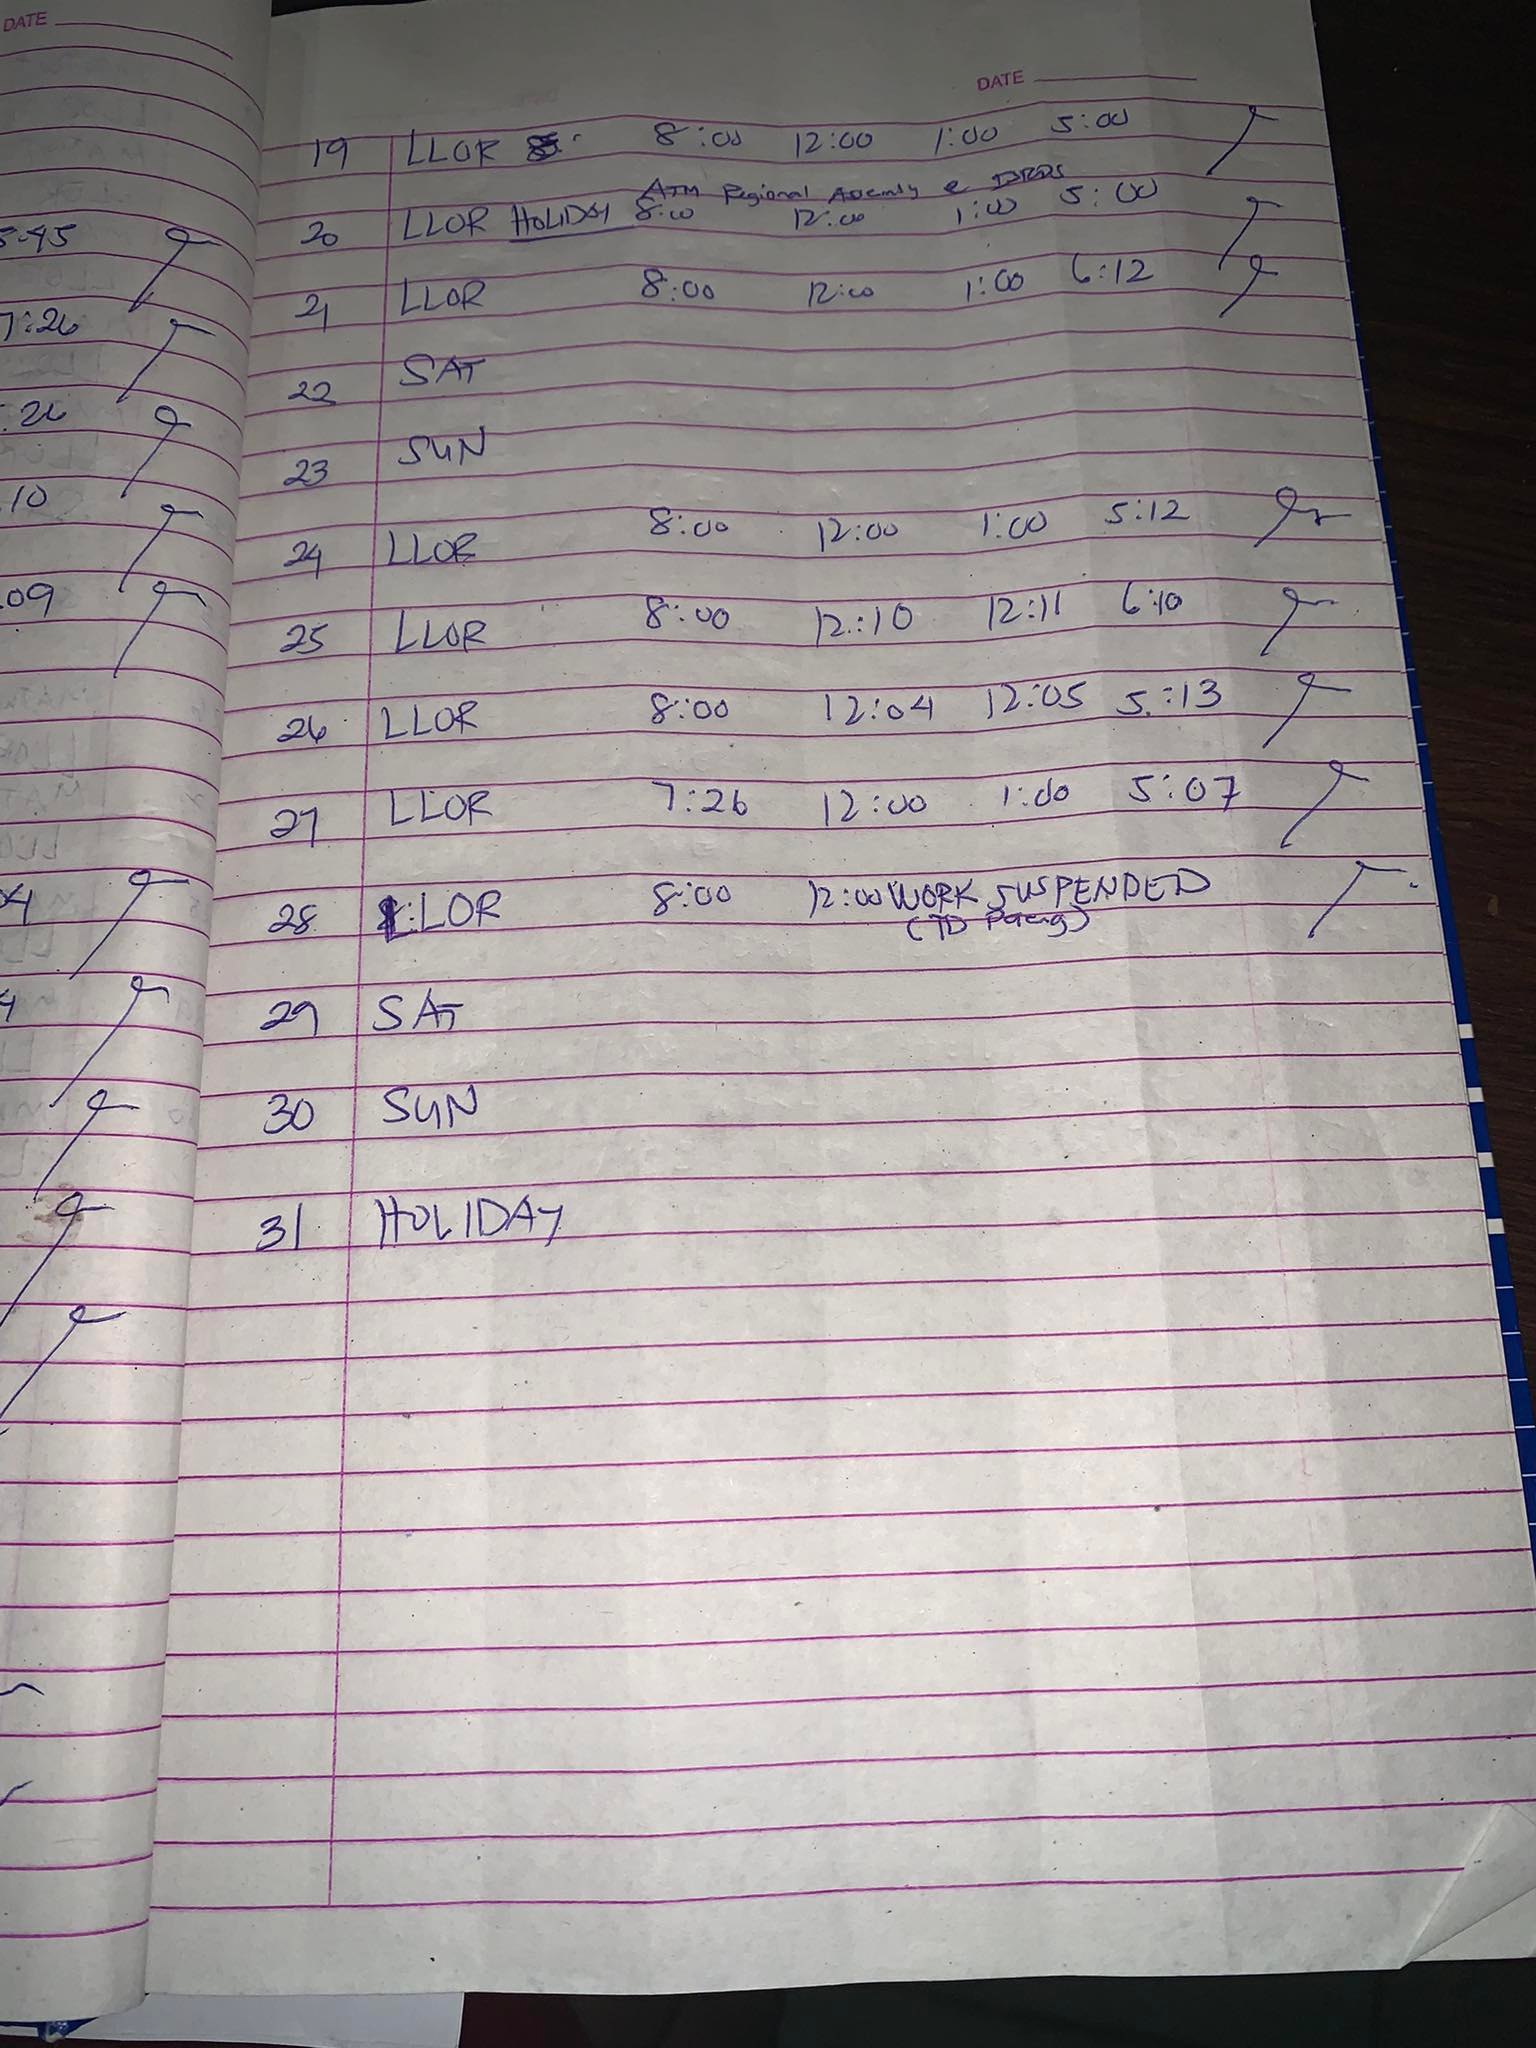 DATE
5:45
7:26
:26
:10
:09
DATE
19 LLOR 8:00 12:00 1:00 5:00
ATM Regional Assembly @
20 LLOR HOLIDAY 8:00 12:00 1:00 5:00
21 LLOR 8:00 12:00 1:00 6:12
22 SAT
23 SUN
24 LLOR 8:00 12:00 1:00 5:12
25 LLOR 8:00 12:10 12:11 6:10
26 LLOR 8:00 12:04 12:05 5:13
27 LLOR 7:26 12:00 1:00 5:07
28 LLOR 8:00 12:00 WORK SUSPENDED
(TD
29 SAT
30 SUN
31 HOLIDAY